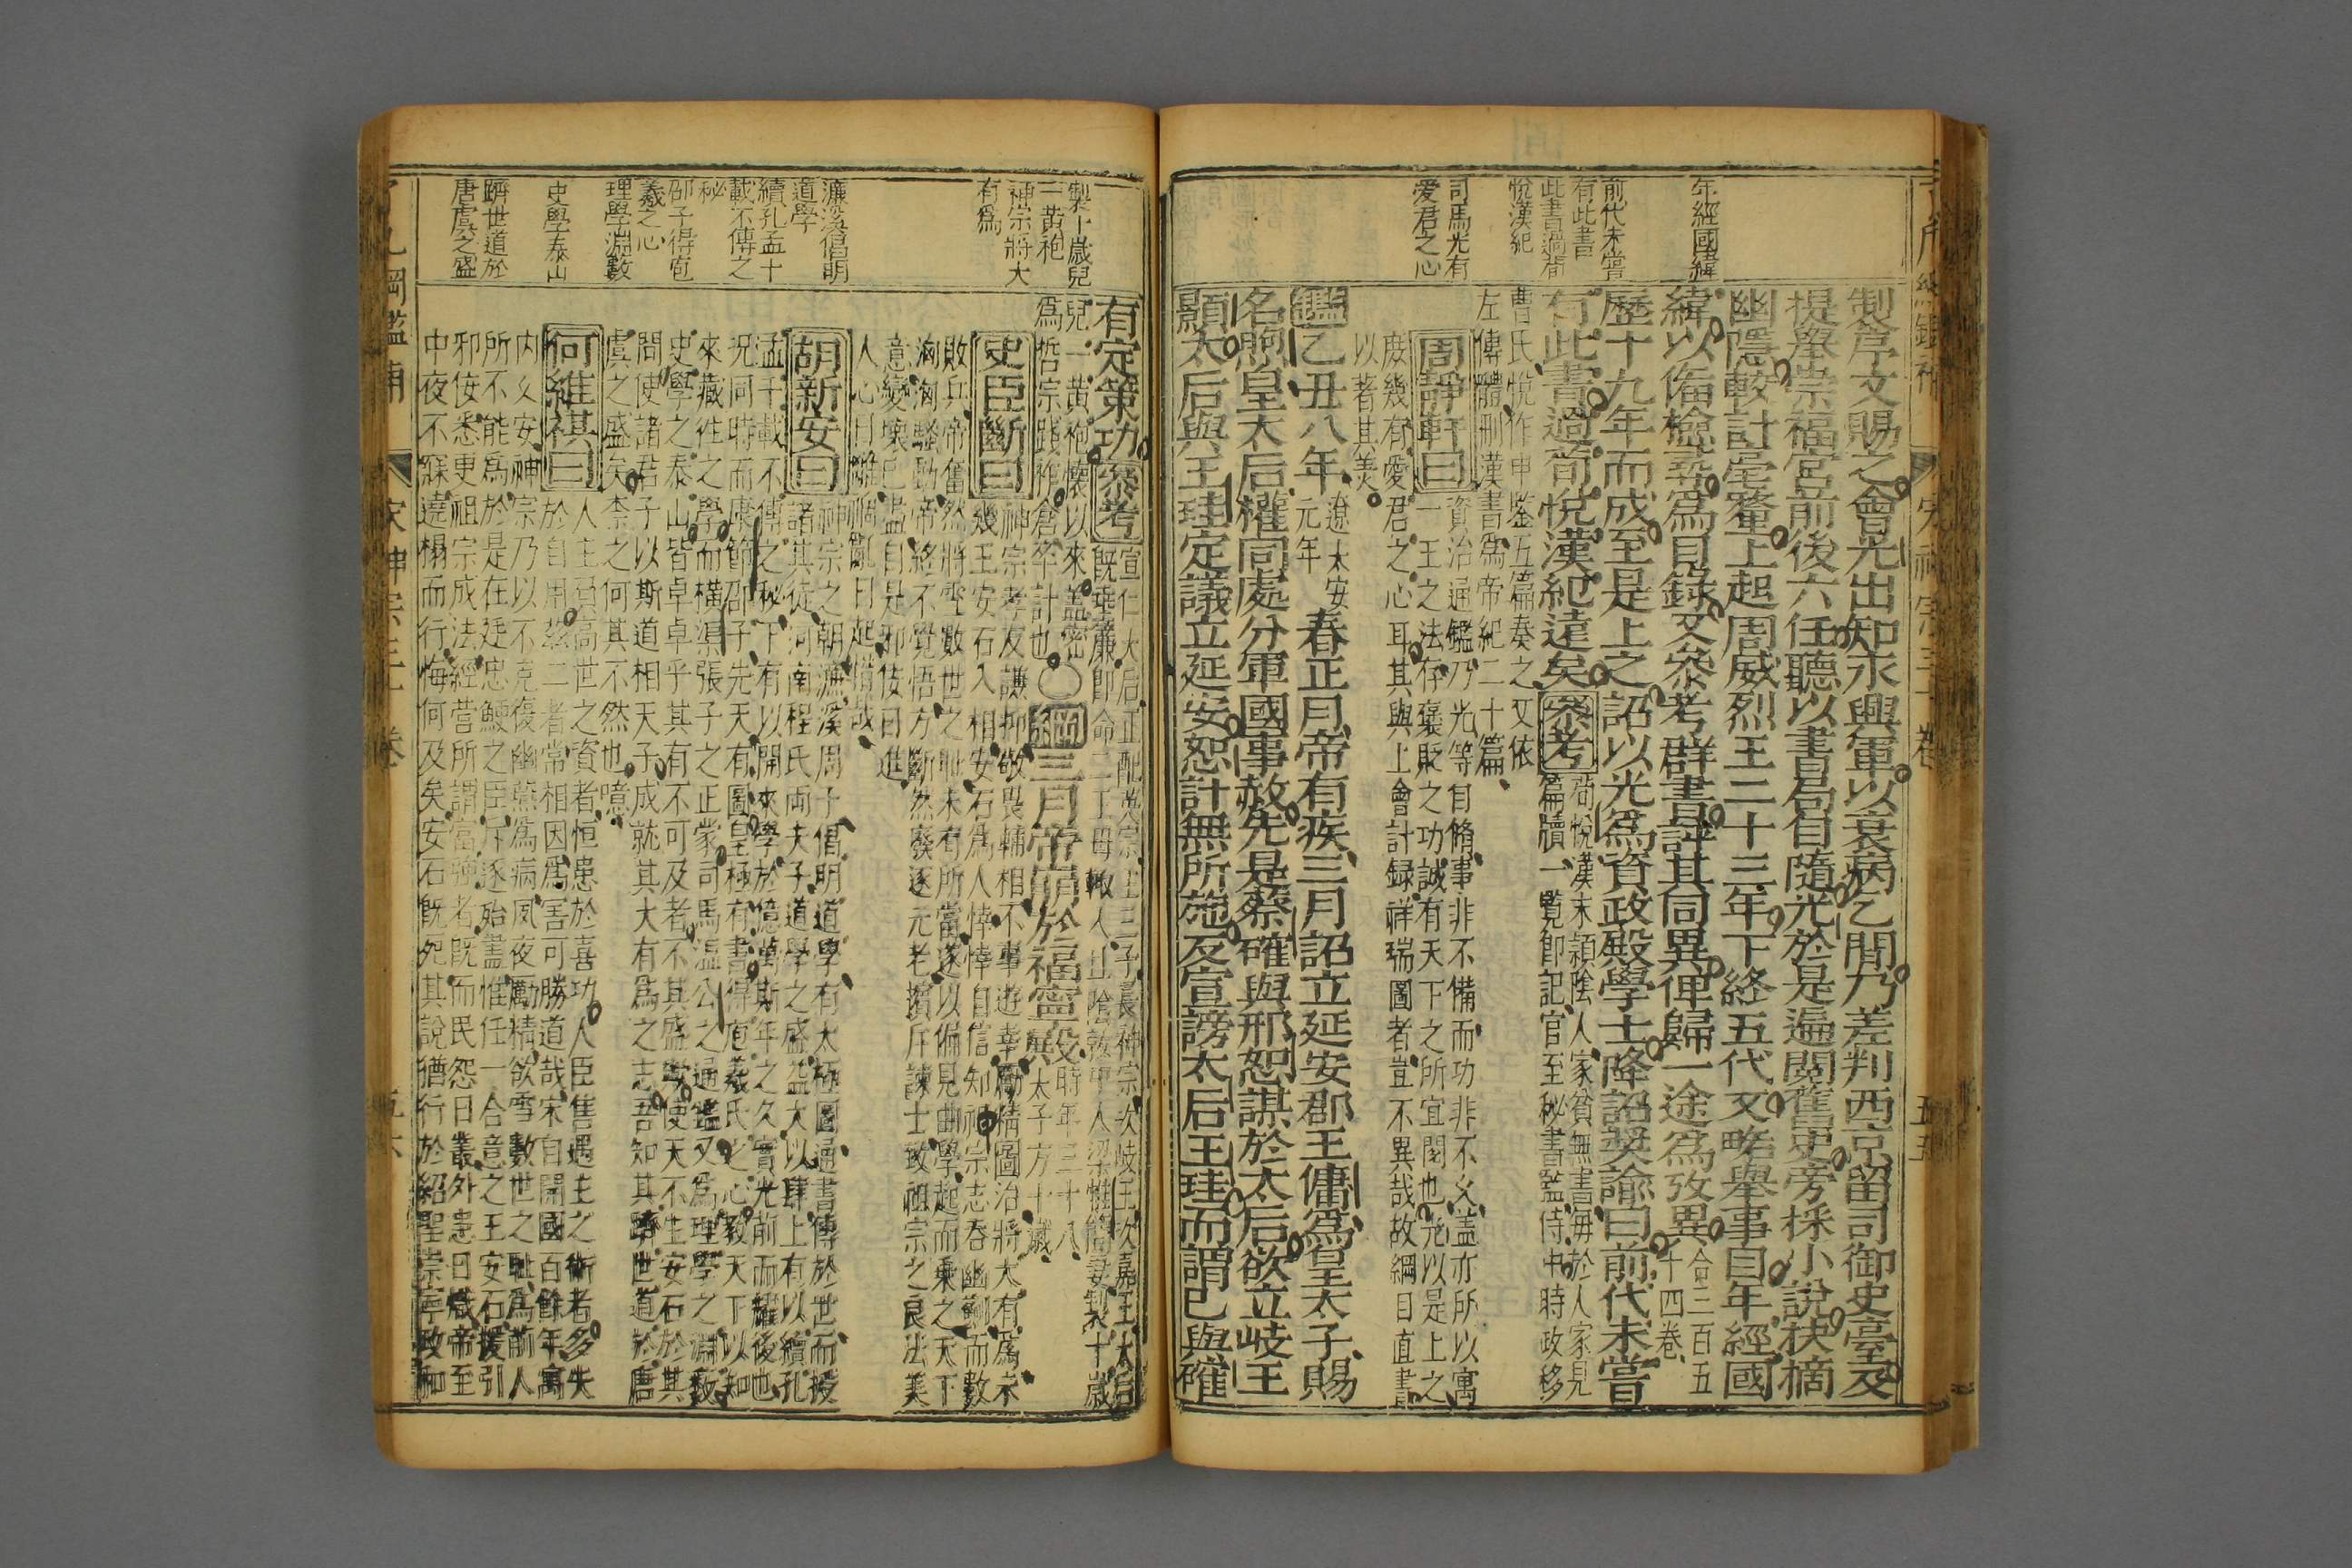 年經國緯
前代未嘗
有此書
此書過荀
悅漢紀
司馬光有
愛君之心
製序文賜之會光出知永興軍以衰病乞閒乃差判西京留司御史臺及
提舉崇福宮前後六任聽以書局自隨光於是遍閱舊史旁採小說抉摘
幽隱較計毫釐上起周威烈王二十三年下終五代又略舉事目年經國
緯以備檢尋爲目錄又參考群書評其同異俾歸一途爲攷異合三百五
十四卷
歷十九年而成至是上之詔以光爲資政殿學士降詔奬諭曰前代未嘗
有此書過荀悅漢紀遠矣參考荀悅漢末潁陰人家貧無書每於人家見
篇牘一覽卽記官至秘書監侍中時政移
曹氏悅作申鑒五篇奏之又依
左傳體刪漢書爲帝紀二十篇
周靜軒曰資治通鑑乃光等自脩事非不備而功非不义盖亦所以寓
一王之法存襃貶之功誠有天下之所宜閱也光以是上之
庻幾有愛君之心耳其與上會計録祥瑞圖者豈不異哉故綱目直書
以著其美
鑑乙丑八年遼太安
元年春正月帝有疾三月詔立延安郡王傭爲皇太子賜
名煦皇太后權同處分軍國事赦先是蔡確與邢恕謀於太后欲立岐王
顥太后與王珪定議立延安恕計無所施反宣謗太后王珪而謂己與確
製十歲兒
一黃袍
神宗將大
有爲
濂溪倡明
道學
續孔孟千
載不傳之
秘
邵子得庖
羲之心
理學淵藪
史學泰山
躋世道於
唐虞之盛
有定策功參考宣仁太后正配英宗生三子長神宗次岐王次嘉王太后
旣垂簾卽命二王母輙入止隂敦中人梁惟簡妻製十歲
兒一黃袍懷以來盖密
爲哲宗踐祚倉卒計也○綱三月帝崩於福寧殿時年三十八
太子方十歲
史臣斷曰神宗孝友謙抑敬畏輔相不事遊幸勵精圖治將大有爲未
幾王安石入相安石爲人悻悻自信知神宗志吞幽薊而數
敗兵帝奮然將雪數世之恥未有所當遂以偏見曲學起而乘之天下
洶洶騷動帝終不覺悟方斷然廢逐元老擯斥諫士致祖宗之良法美
意變壞已盡自是邪佞日進
人心日離禍亂日起惜哉
胡新安曰神宗之朝濂溪周子倡明道學有太極圖通書傳於世而授
諸其徒河南程氏両夫子道學之盛益大以肆上有以續孔
孟千載不傳之秘下有以開來學於億萬斯年之久實光前而耀後也
况同時而康節邵子先天有圖皇極有書得庖羲氏之心教天下以知
來藏徃之學而橫渠張子之正蒙司馬溫公之通鑑又爲理學之淵藪
史學之泰山皆卓卓乎其有不可及者不其盛歟使天不生安石於其
間使諸君子以斯道相天子成就其大有爲之志吾知其躋世道於唐
虞之盛矣柰之何其不然也噫
何維祺曰人主負高世之資者恒患於喜功人臣售遇主之術者多失
於自用玆二者常相因爲害可勝道哉宋自開國百餘年寓
内乂安神宗乃以不克復幽燕爲病夙夜勵精欲雪數世之恥爲前人
所不能爲於是在廷忠鯁之臣斥逐殆盡惟任一合意之王安石援引
邪佞悉更祖宗成法經營所謂富強者旣而民怨日叢外患日熾帝至
中夜不寐遶榻而行悔何及矣安石旣死其說猶行於紹聖崇寧政和